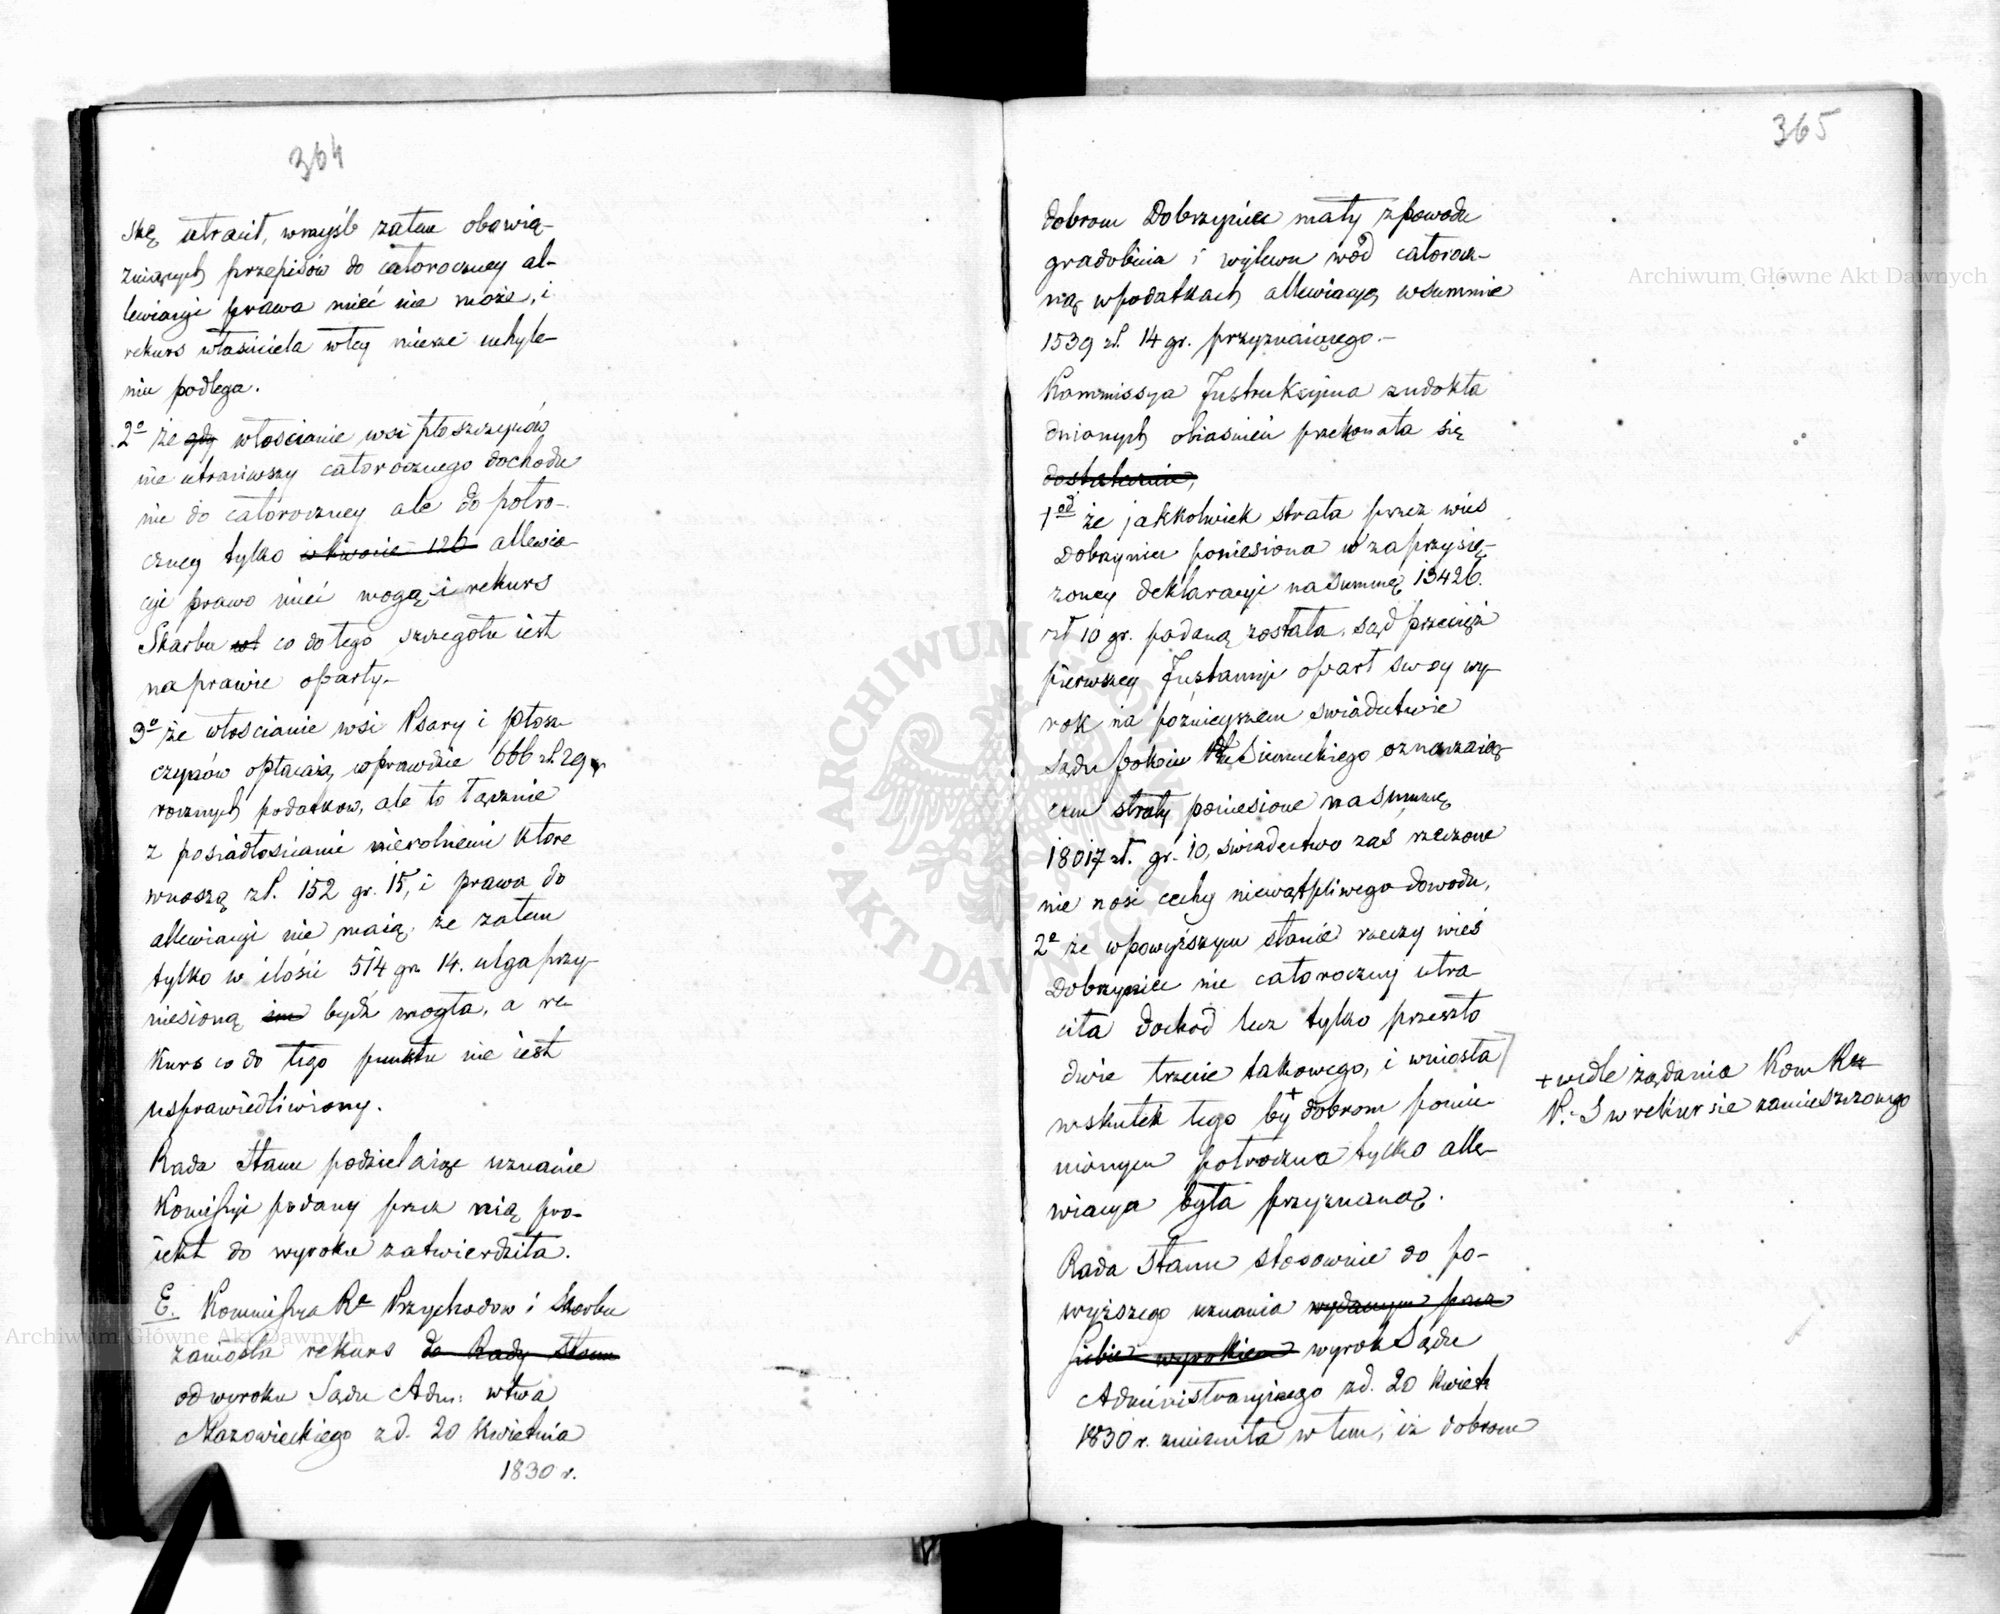 364
skę utracił, wmyśl zatem obowią-
zuiących przepisów do całoroczney al-
lewiacyi prawa mieć nie może, i
rekurs właściciela wtey mierze uchyle-
niu podlega.
2º że gdy włościanie wsi Płoszczynów
nie utraciwszy całorocznego dochodu
nie do całoroczney ale do półro-
czney tylko w kwocie 126 allewia-
cyi prawo mieć mogą i rekurs
Skarbu co do tego szczegółu iest
na prawie oparty.
3º że włościanie wsi Psary i Płosz-
czynów opłacaią wprawdzie 666 zł. 29 gr
rocznych podatkow, ale to łącznie
z posiadłościami nierolnemi ktore
wnoszą zł. 152 gr. 15, i prawa do
allewiacyi nie maią, że zatem
tylko w ilości 514 gr. 14. ulga przy-
niesioną bydź mogła, a re-
kurs co do tego punktu nie iest
usprawiedliwiony.
Rada Stanu podzielaiąc uznanie
Komissyi podany przez nią pro-
iekt do wyroku zatwierdziła.
E. Kommissya R. Przychodow i Skarbu
zaniosła rekurs do Rady Stanu
od wyroku Sądu Adm: wtwa
Mazowieckiego z d. 20 Kwietnia
1830 r.
365
dobrom Dobrzyniec mały z powodu
gradobicia i wylewu wód całorocz-
ną w podatkach allewiacyą w summie
1539 zł. 14 gr. przyznaiącego.-
Kommissya Instrukcyina z udokła
dnionych obiaśnień przekonała się
dostatecznie,
1od że jakkolwiek strata przez wieś
Dobrzyniec poniesiona w zaprzysię-
żoney deklaracyi na summę 13426.
zł 10 gr. podaną została, sąd przecięż
pierwszey Instancyi oparł swoy wy-
rok na póznieyszem świadectwie
Sądu pokoiu Pttu Siennickiego oznaczaią-
cem straty poniesione na summę
18017 zł. gr. 10, świadectwo zaś rzeczone
nie nosi cechy niewątpliwego dowodu,
2e że w powyższym stanie rzeczy wieś
Dobrzyniec nie całoroczny utra-
ciła dochód lecz tylko przeszło
dwie trzecie takowego, i wniosła
wskutek tego by + dobrom pomie-
nionym półroczna tylko alle-
wiacya była przyznaną.
+ wedle żądania Kom Rz
P. i S w rekursie zamieszczonego
Rada Stanu stosownie do po-
wyższego uznania wydanym przez
siebie wyrokiem wyrok Sądu
Administracyinego z d. 20 Kwiet
1830 r. zmieniła w tem, iż dobrom
Archiwum Główne Akt Dawnych
Archiwum Główne Akt Dawnych
ARCHIWUM GŁÓWNE AKT DAWNYCH